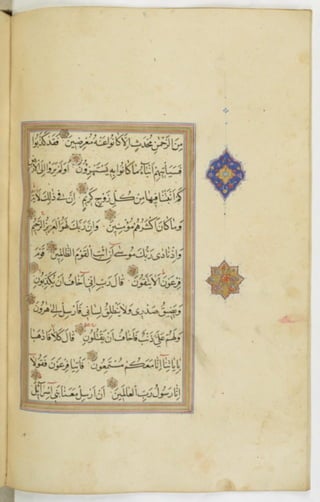 مِنَ الرَّحْمٰنِ مُحْدَثٍ إِلَّا كَانُوا عَنْهُ مُعْرِضِينَ فَقَدْ كَذَّبُوا
فَسَيَأْتِيهِمْ أَنْبَاءُ مَا كَانُوا بِهِ يَسْتَهْزِؤُنَ أَوَلَمْ يَرَوْا إِلَى الْأَرْضِ
كَمْ أَنْبَتْنَا فِيهَا مِنْ كُلِّ زَوْجٍ كَرِيمٍ إِنَّ فِي ذٰلِكَ لَآيَةً
وَمَا كَانَ أَكْثَرُهُمْ مُؤْمِنِينَ وَإِنَّ رَبَّكَ لَهُوَ الْعَزِيزُ الرَّحِيمُ
وَإِذْ نَادَى رَبُّكَ مُوسَى أَنِ ائْتِ الْقَوْمَ الظَّالِمِينَ قَوْمَ
فِرْعَوْنَ أَلَا يَتَّقُونَ قَالَ رَبِّ إِنِّي أَخَافُ أَنْ يُكَذِّبُونِ
وَيَضِيقُ صَدْرِي وَلَا يَنْطَلِقُ لِسَانِي فَأَرْسِلْ إِلَى هَارُونَ
وَلَهُمْ عَلَيَّ ذَنْبٌ فَأَخَافُ أَنْ يَقْتُلُونِ قَالَ كَلَّا فَاذْهَبَا
بِآيَاتِنَا إِنَّا مَعَكُمْ مُسْتَمِعُونَ فَأْتِيَا فِرْعَوْنَ فَقُولَا
إِنَّا رَسُولُ رَبِّ الْعَالَمِينَ أَنْ أَرْسِلْ مَعَنَا بَنِي إِسْرَائِيلَ